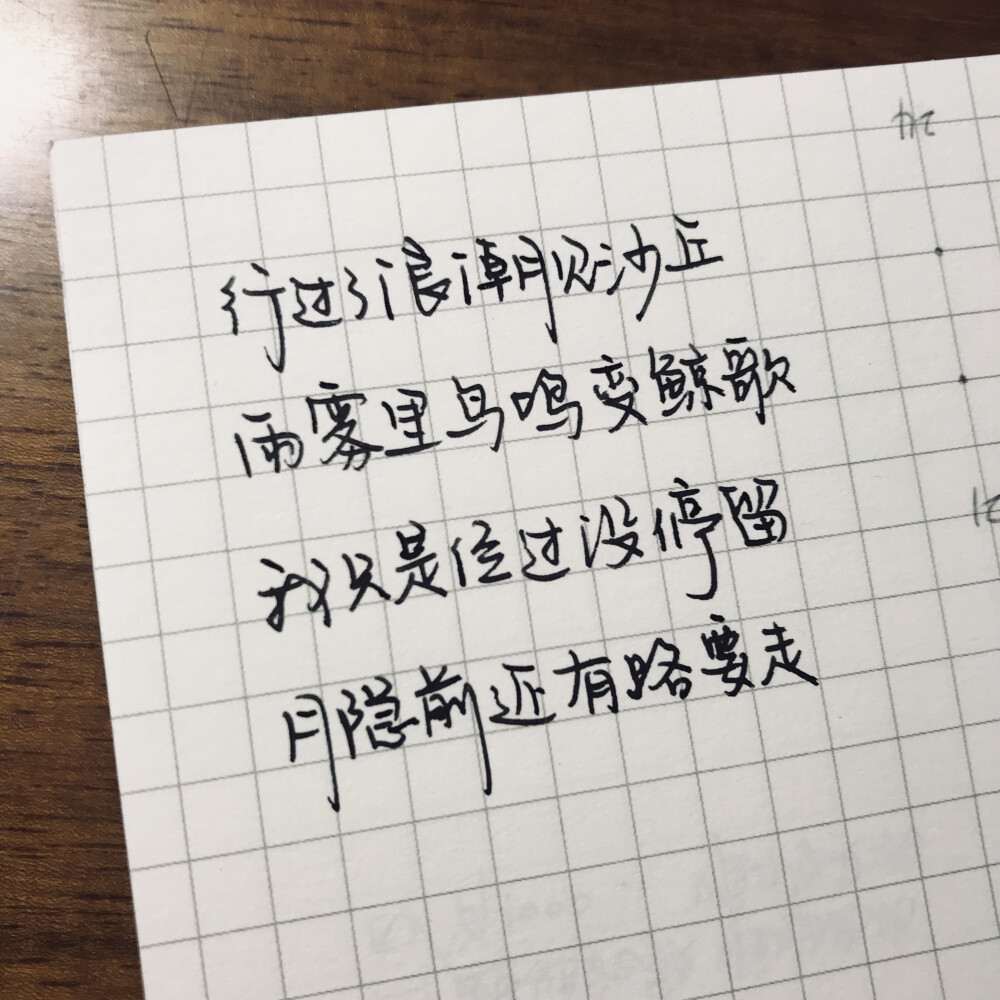 24
行过了浪潮见沙丘
雨雾里鸟鸣变鲸歌
我只是经过没停留
月隐前还有路要走
21